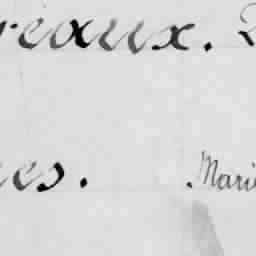 reaux.
es. Mari